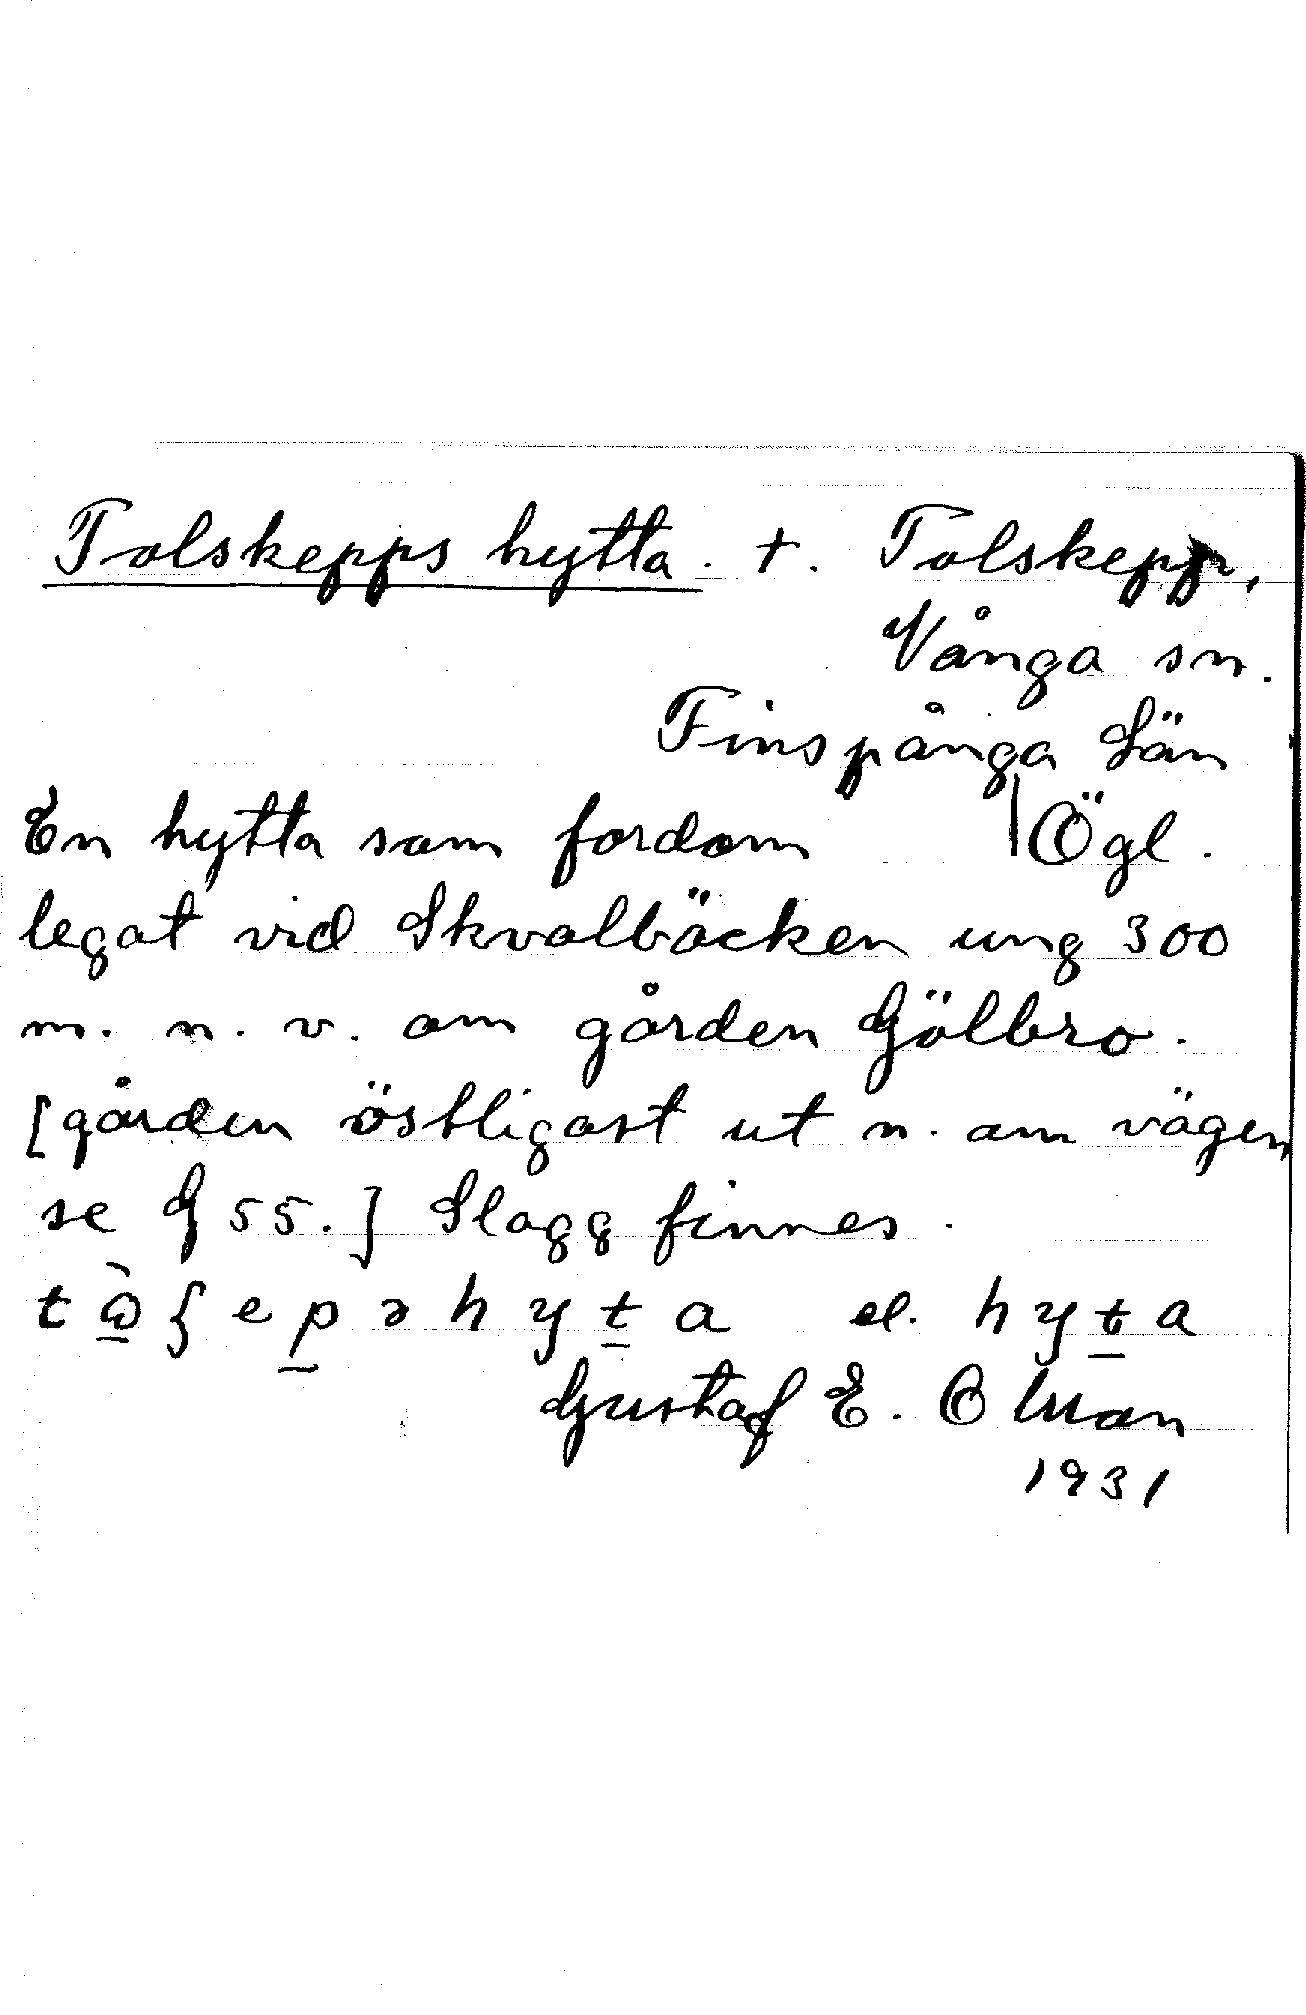 Tolskepps hytta. +. Tolskepp,
Vånga sn.
Finspånga Län
En hytta som fordom | Ögl.
legat vid Skvalbäcken ung 300
m. n. v. om gården Gölbro.
[gården östligast ut n. om vägen
se G 55.] Slagg finnes.
hyta el. hyta
Gustaf E. Olman
1931